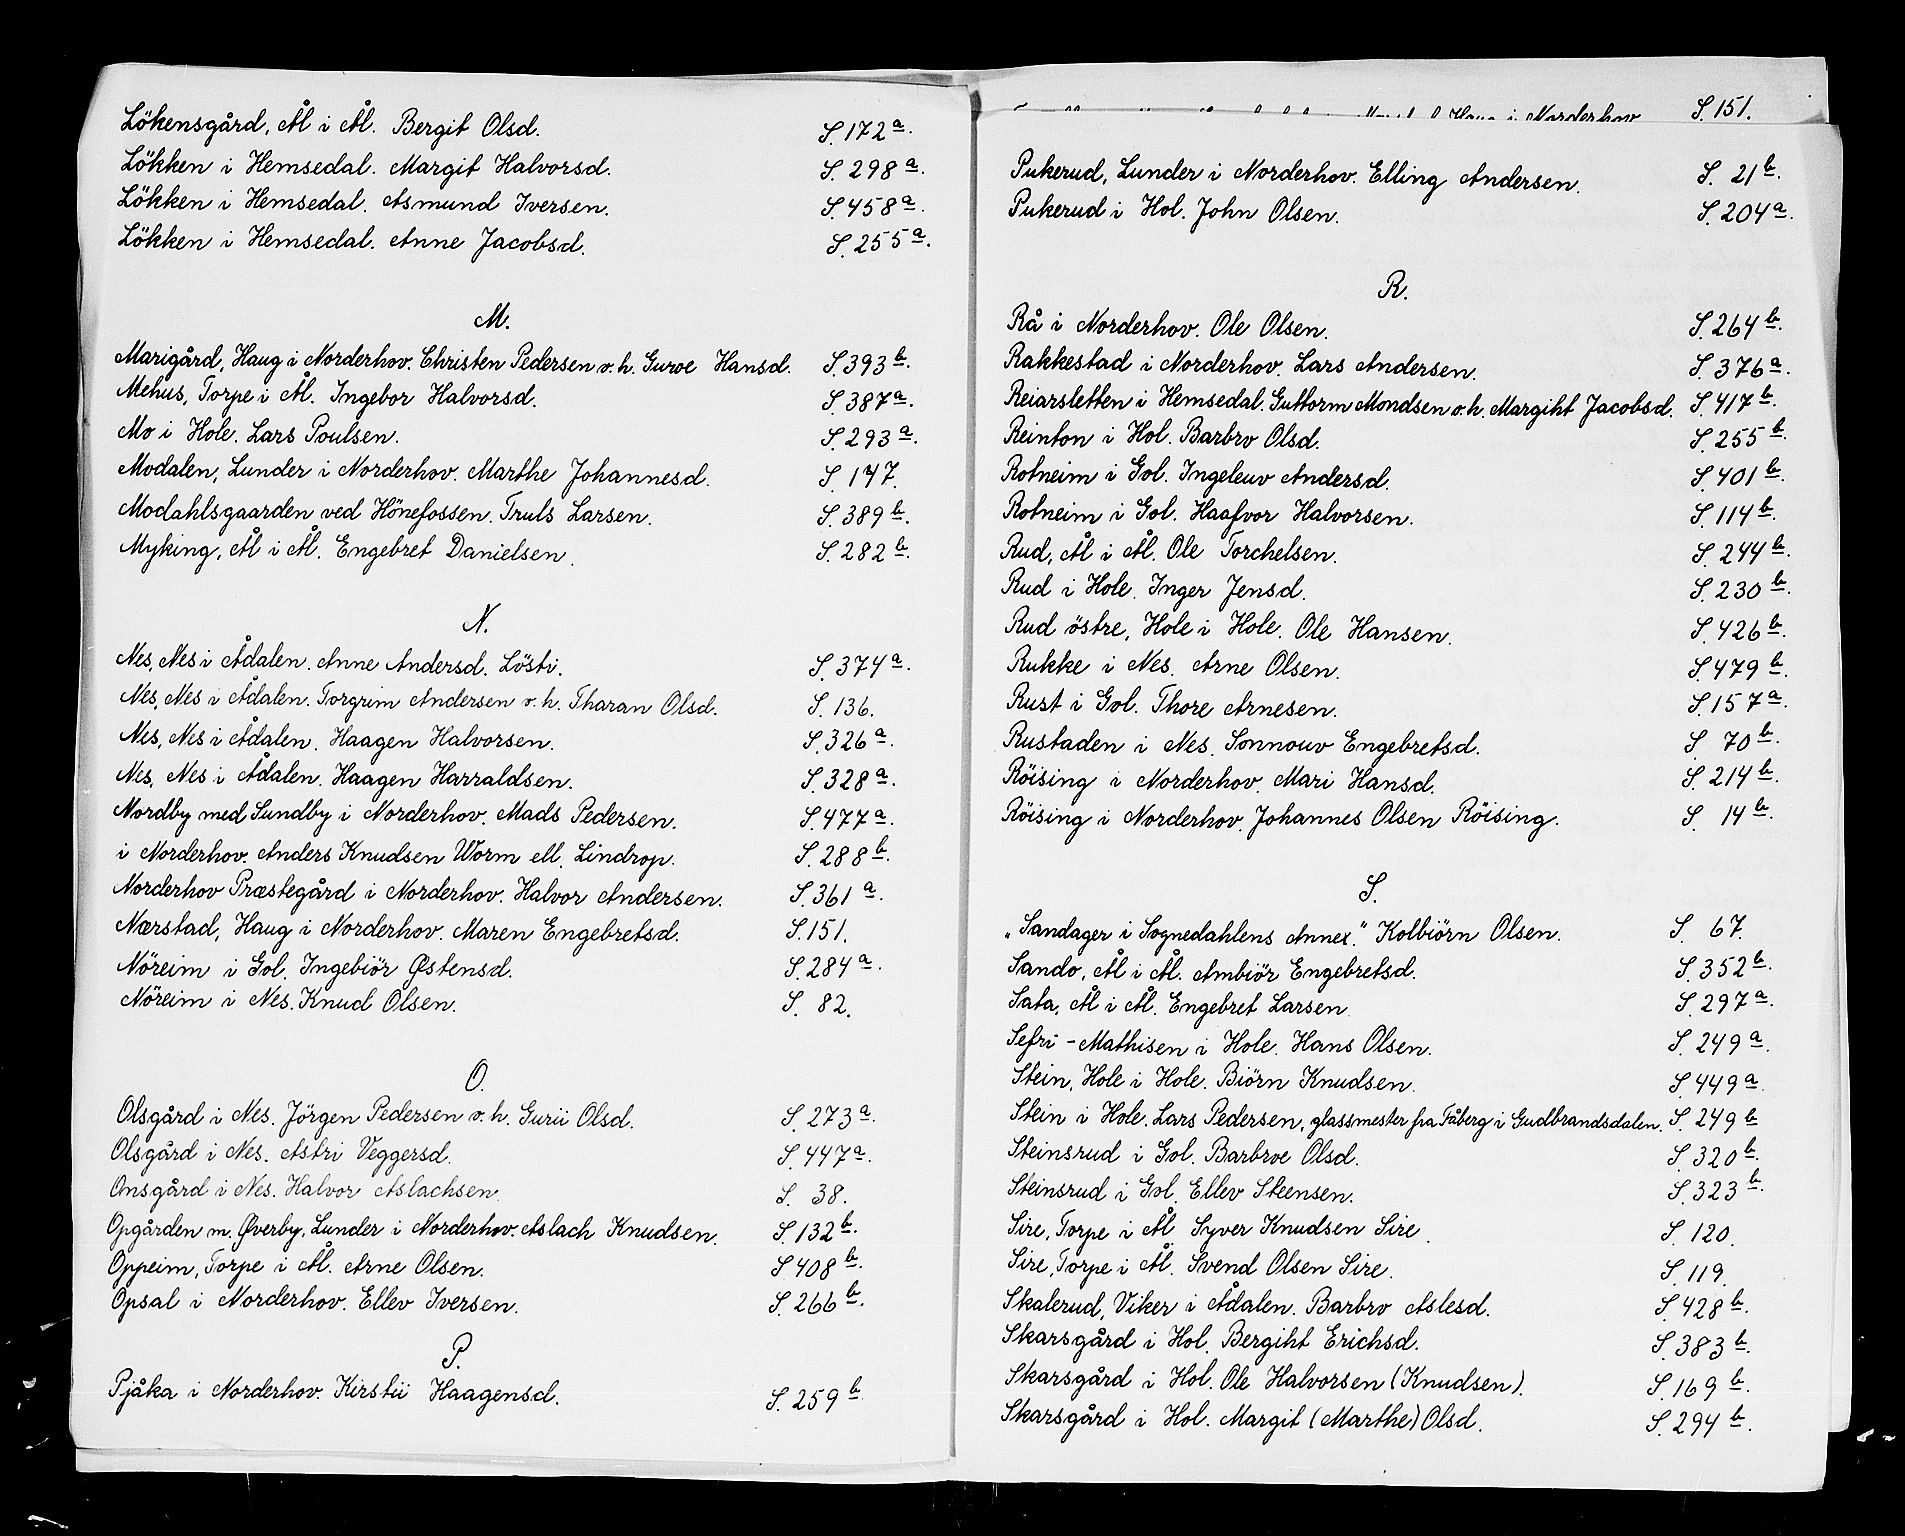 Lökensgård, Ål i Ål. Bergit Olsd. S. 172 a.
Lökken i Hemsedal. Margit Halvorsd. S. 298 a.
Lökken i Hemsedal. Asmund Iversen. S. 458 a.
Lökken i Hemsedal. Anne Jacobsd. S. 255 a.
M.
Marigård, Haug i Norderhov. Christen Pedersen v. h. Gurve Hansd. S. 393 b.
Mehus, Torpe i Ål. Ingebor Halvorsd. S. 387 a.
Mo i Hole. Lars Poulsen. S. 293 a.
Modalen, Lunder i Norderhov. Marthe Johannesd. S. 147.
Modahlsgaarden ved Hönefossen. Truls Larsen. S. 389 b.
Myking, Ål i Ål. Engebret Danielsen. S. 282 b.
N.
Nes, Nes i Ådalen. Anne Andersd. Lösti. S. 374 a.
Nes, Nes i Ådalen. Torgrim Andersen v. h. Tharan Olsd. S. 136.
Nes, Nes i Ådalen. Haagen Halvorsen. S. 326 a.
Nes, Nes i Ådalen. Haagen Harraldsen. S. 328 a.
Nordby med Sundby i Norderhov. Mads Pedersen. S. 477 a.
i Norderhov. Anders Knudsen Worm ell. Lindrop. S. 288 b.
Norderhov Præstegård i Norderhov. Halvor Andersen. S. 361 a.
Nærstad, Haug i Norderhov. Maren Engebretsd. S. 151.
Nöreim i Gol. Ingebiör Østensd. S. 284 a.
Nöreim i Nes. Knud Olsen. S. 82.
O.
Olsgård i Nes. Jörgen Pedersen v. h. Gurii Olsd. S. 273 a.
Olsgård i Nes. Astri Veggersd. S. 447 a.
Onsgård i Nes. Halvor Aslachsen. S. 38.
Opgården m. Øverby, Lunder i Norderhov. Aslach Knudsen. S. 132 b.
Oppeim, Torpe i Ål. Arne Olsen. S. 408 b.
Opsal i Norderhov. Ellev Iversen. S. 266 b.
P.
Pjåka i Norderhov. Kirstii Haagensd. S. 259 b.
Haug i Norderhov S. 151.
Pukerud, Lunder i Norderhov. Elling Andersen. S. 21 b.
Pukerud i Hol. John Olsen. S. 204 a.
R.
Rå i Norderhov. Ole Olsen. S. 264 b.
Rakkestad i Norderhov. Lars Andersen. S. 376 a.
Reiarsletten i Hemsedal. Guttorm Mondsen v. h. Margiht Jacobsd. S. 417 b.
Reinton i Hol. Barbro Olsd. S. 255 b.
Rotneim i Gol. Ingeleuv Andersd. S. 401 b.
Rotneim i Gol. Haafvor Halvorsen. S. 114 b.
Rud, Ål i Ål. Ole Torchelsen. S. 244 b.
Rud i Hole. Inger Jensd. S. 230 b.
Rud östre, Hole i Hole. Ole Hansen. S. 426 b.
Rukke i Nes. Arne Olsen. S. 479 b.
Rust i Gol. Thore Arnesen. S. 157 a.
Rustaden i Nes. Sonnouv Engebretsd. S. 70 b.
Röising i Norderhov. Mari Hansd. S. 214 b.
Röising i Norderhov. Johannes Olsen Röising. S. 14 b.
S.
„Sandager i Sognedahlens Annex." Kolbiörn Olsen. S. 67.
Sando, Ål i Ål. Ambiör Engebretsd. S. 352 b.
Sata, Ål i Ål. Engebret Larsen. S. 297 a.
Sefri-Mathisen i Hole. Hans Olsen. S. 249 a.
Stein, Hole i Hole. Biörn Knudsen. S. 449 a.
Stein i Hole. Lars Pedersen, glassmester fra Fåberg i Gudbrandsdalen. S. 249 b
Steinsrud i Gol. Barbroe Olsd. S. 320 b.
Steinsrud i Gol. Ellev Steensen. S. 323 b.
Sire, Torpe i Ål. Syver Knudsen Sire. S. 120.
Sire, Torpe i Ål. Svend Olsen Sire. S. 119.
Skalerud, Viker i Ådalen. Barbro Aslesd. S. 428 b.
Skarsgård i Hol. Bergiht Erichsd. S. 383 b.
Skarsgård i Hol. Ole Halvorsen (Knudsen). S. 169 b.
Skarsgård i Hol. Margit (Marthe) Olsd. S. 294 b.